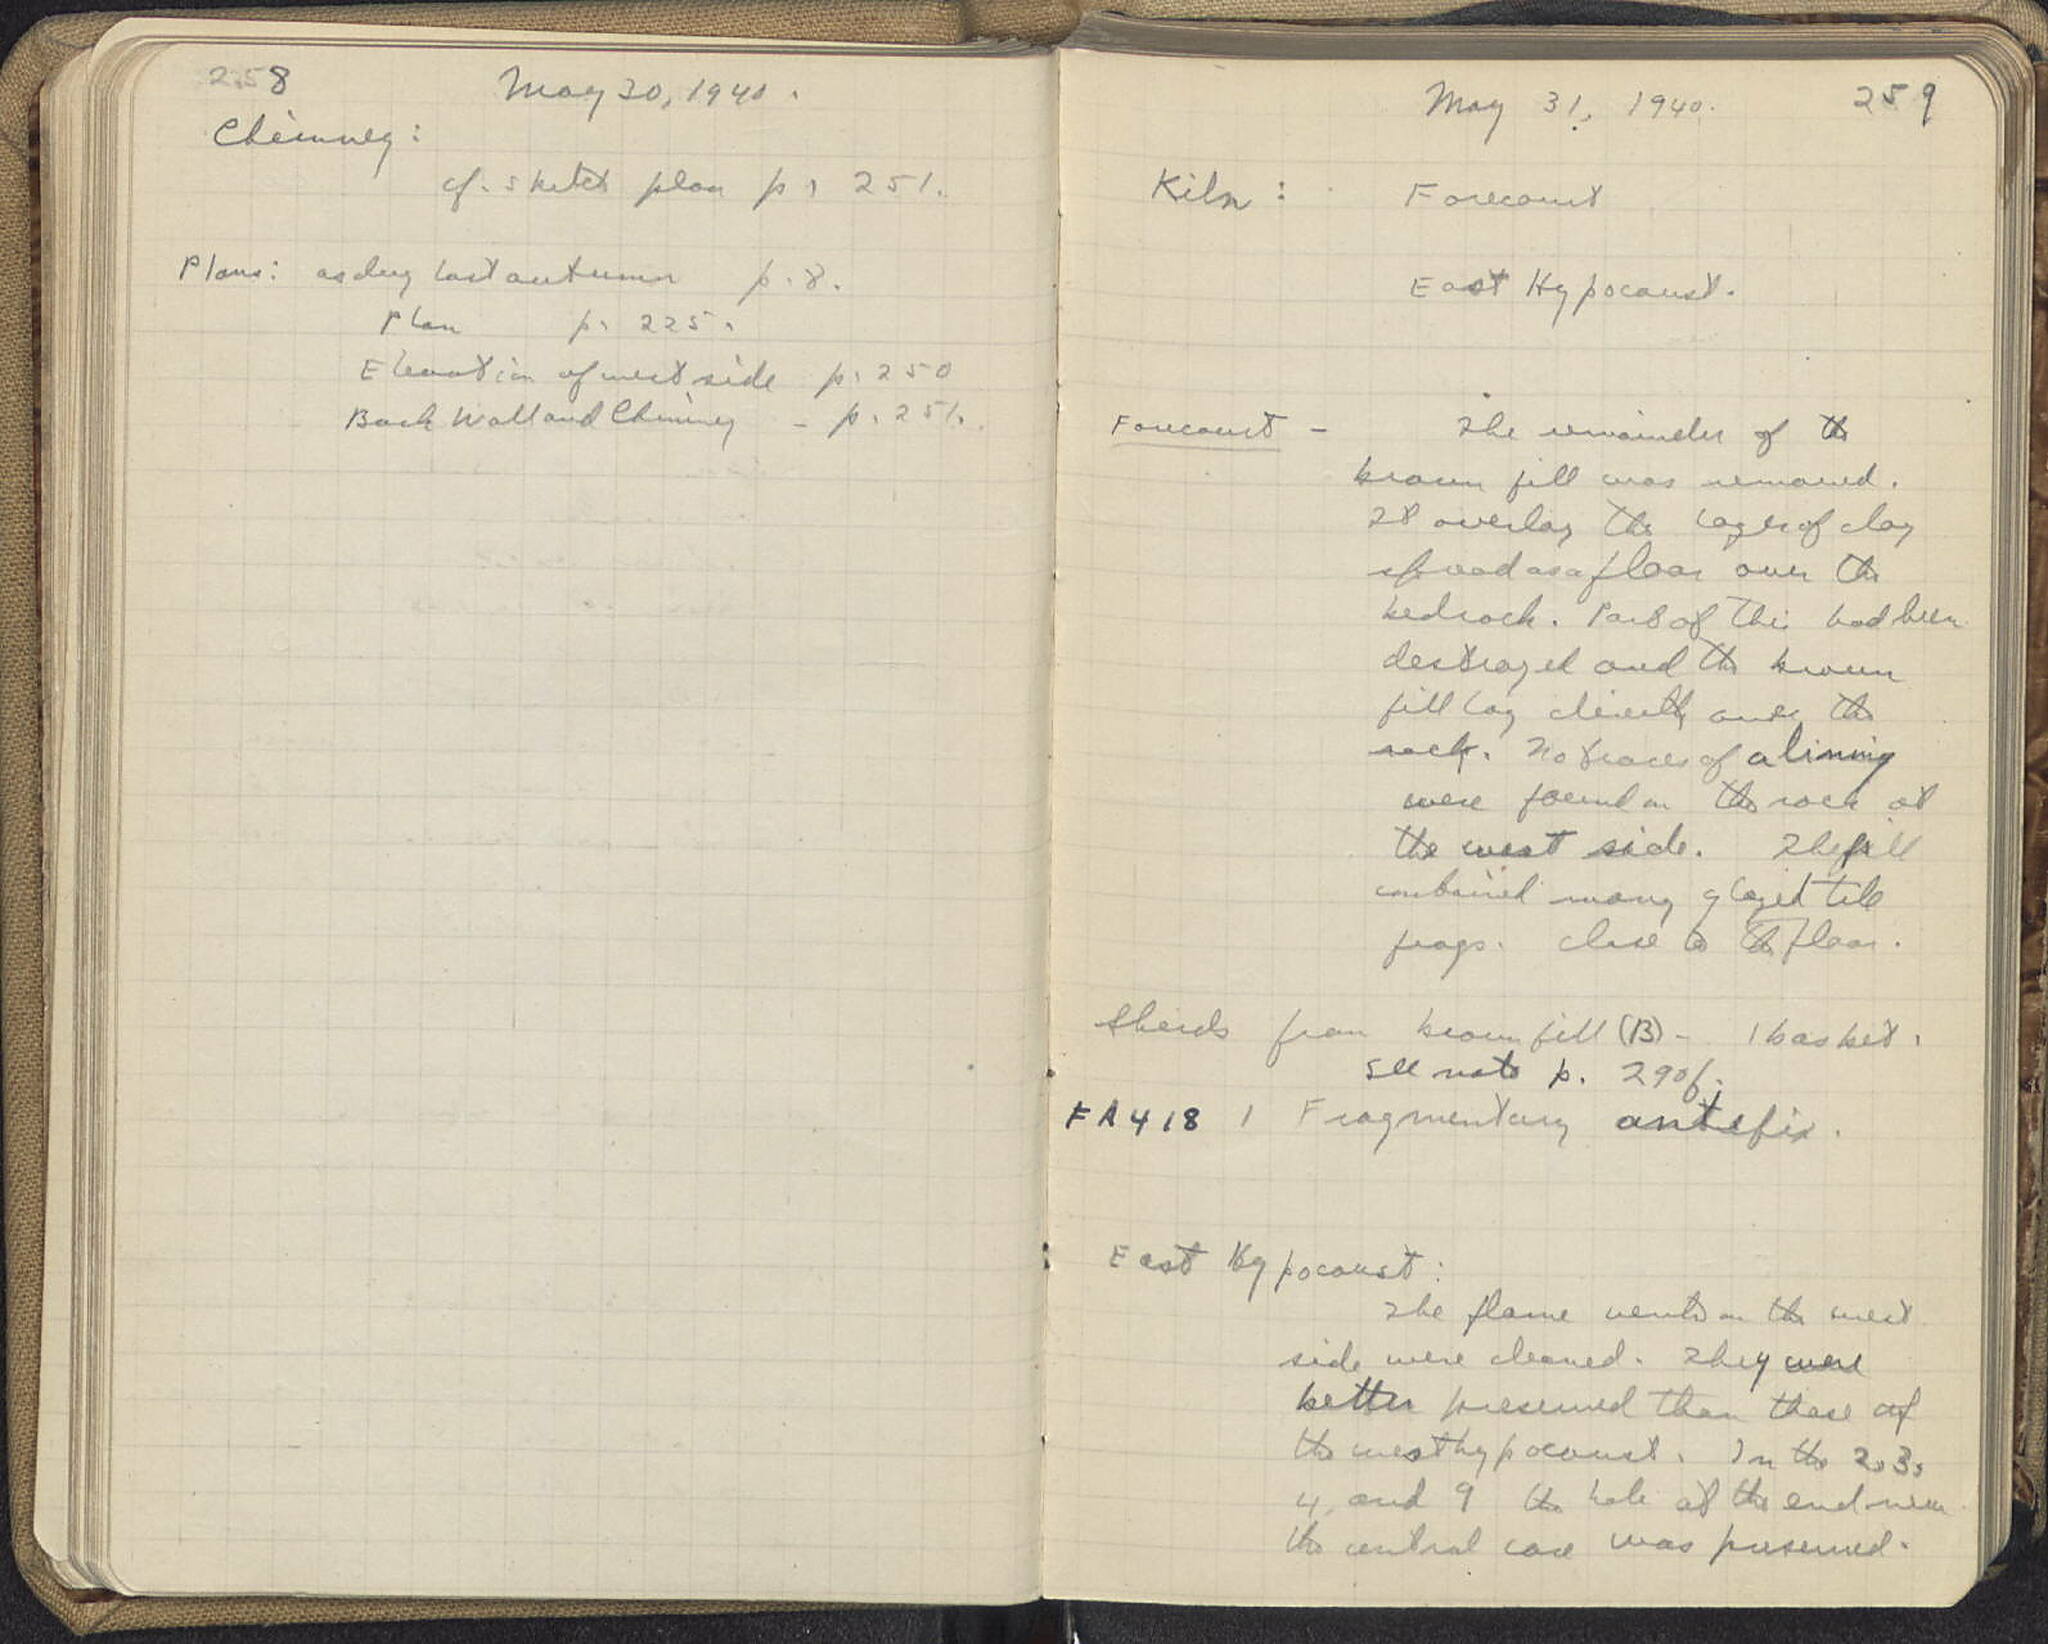 258
May 30, 1940.
Chimney:
cf. sketch plan p. 251.
Plans: as dug last autumn p. 8.
Plan p. 225.
Elevation of west side p. 250
Back Wall and Chimney - p. 251.
May 31, 1940.
259
Kiln: Forecourt
East Hypocaust.
Forecourt - The remainder of the
brown fill was removed.
It overlay the layer of clay
spread as a floor over the
bedrock. Part of this had been
destroyed and the brown
fill lay directly over the
rock. No traces of a lining
were found on the rock at
the west side. The fill
contained many glazed tile
frags. close to the floor.
Sherds from brown fill (B) - 1 basket.
See note p. 290f.
FA 418 1 Fragmentary antefix.
East Hypocaust:
The flame vents on the west
side were cleaned. They were
better preserved than those of
the west hypocaust. In the 2, 3,
4, and 9 the hole at the end near
the central core was preserved.